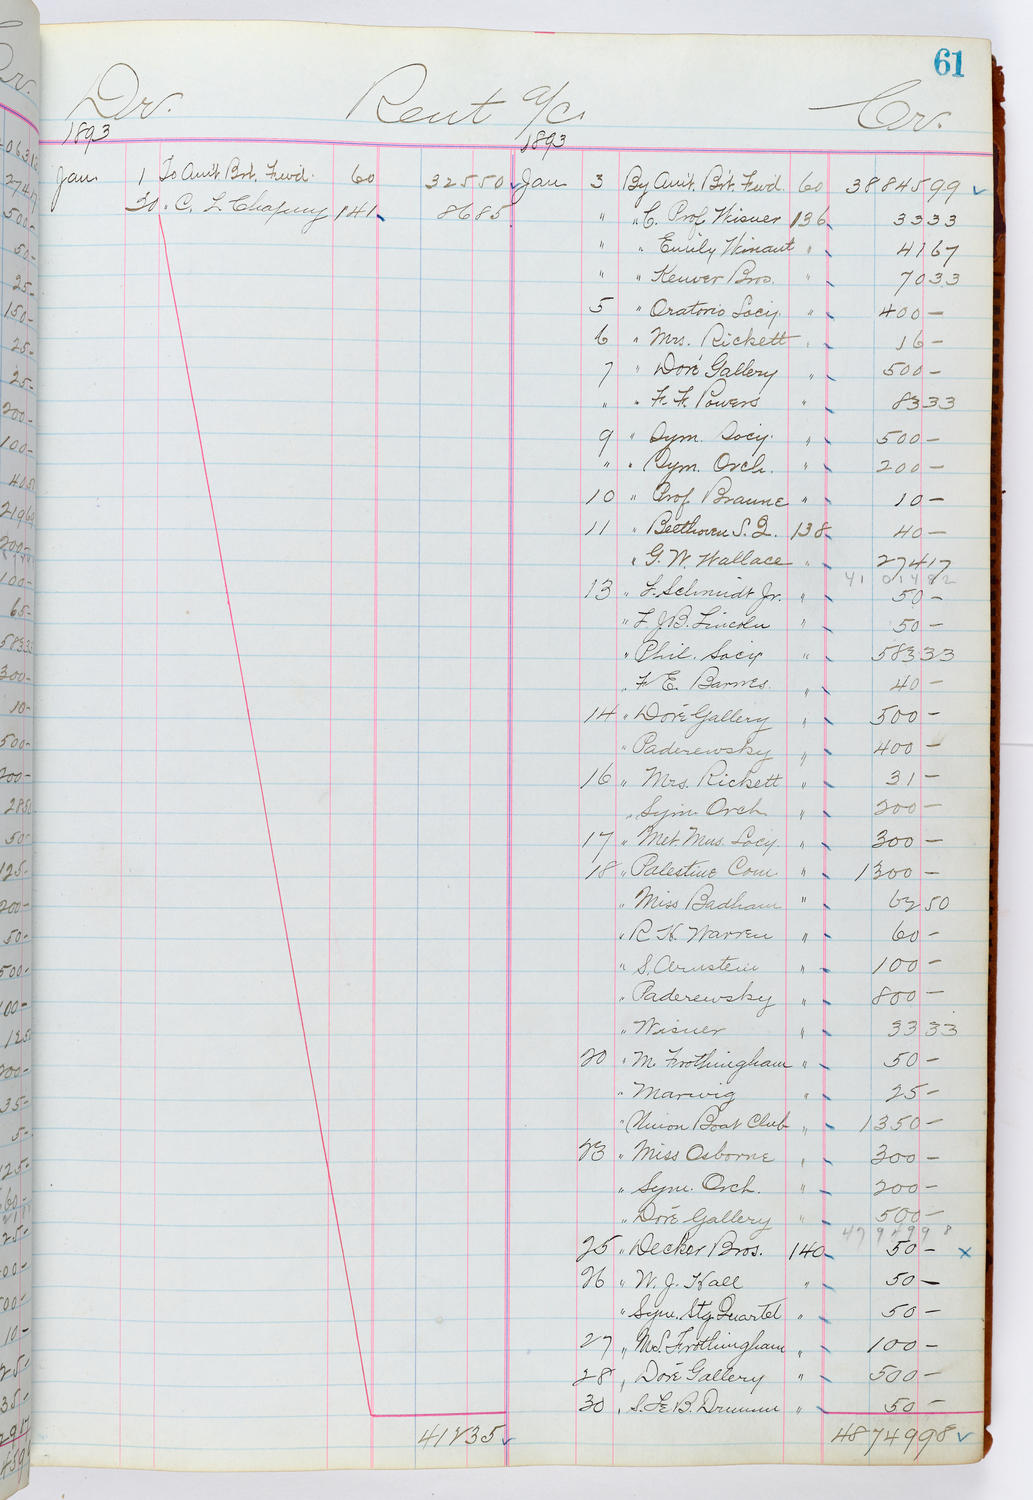 61
Dr. Rent a/c. Cr.
1893 1893
Jan 1 To Am't Br't. Fwd. 60 325 50
30 " C. L. Chapury 141 86 85
Jan 3 By Am't. Br't. Fwd. 60 38845 99
" " C. Prof Wisner 136 33 33
" " Emily Winant " 41 67
" " Keuwer Bros. " 70 33
5 " Oratorio Socy. " 400 —
6 " Mrs. Rickett " 16 —
7 " Doré Gallery " 500 —
" " F. F. Powers " 83 33
9 " Sym. Socy. " 500 —
" " Sym. Orch. " 200 —
10 " Prof Braune " 10 —
11 " Beethoven S. Q. 138 40 —
" G. W. Wallace " 274 17
41 014 82
13 " F. Schmidt Jr. " 50 —
" F J. B. Lincoln " 50 —
" Phil. Socy " 583 33
" F. E. Barnes. " 40 —
14 " Doré Gallery " 500 —
" Paderewsky " 400 —
16 " Mrs. Rickett " 31 —
" Sym. Orch " 200 —
17 " Met. Mus. Socy. " 300 —
18 " Palestine Com " 1300 —
" Miss Badham " 62 50
" R H. Warren " 60 —
" S. Arnstein " 100 —
" Paderewsky " 800 —
" Wisner " 33 33
20 " M. Frothingham " 50 —
" Marwig " 25 —
" Union Boat Club " 1350 —
23 " Miss Osborne " 300 —
" Sym. Orch. " 200 —
" Doré Gallery " 500 —
47 949 98
25 " Decker Bros. 140 50 — x
26 " W. J. Hall " 50 —
" Sym. Stg. Quartet " 50 —
27 " M S. Frothingham " 100 —
28 " Doré Gallery " 500 —
30 " S. F. E. B. Drumm " 50 —
412 35 48749 98